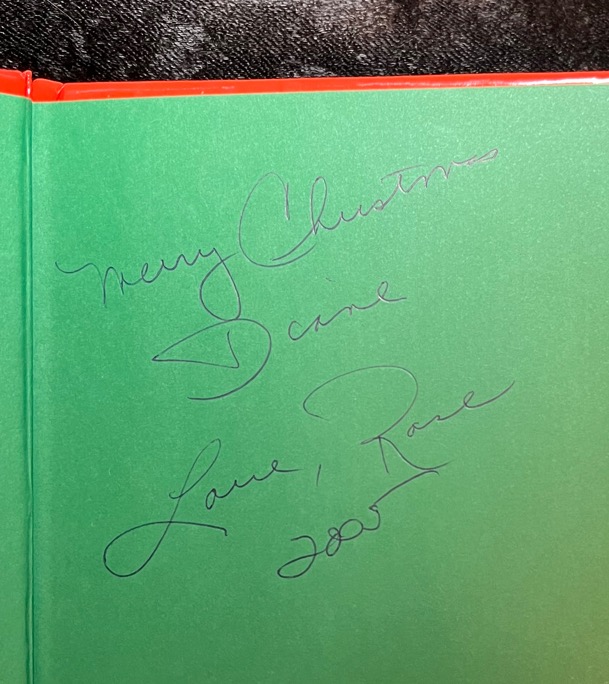 Merry Christmas
Diane
Love, Rose
2005